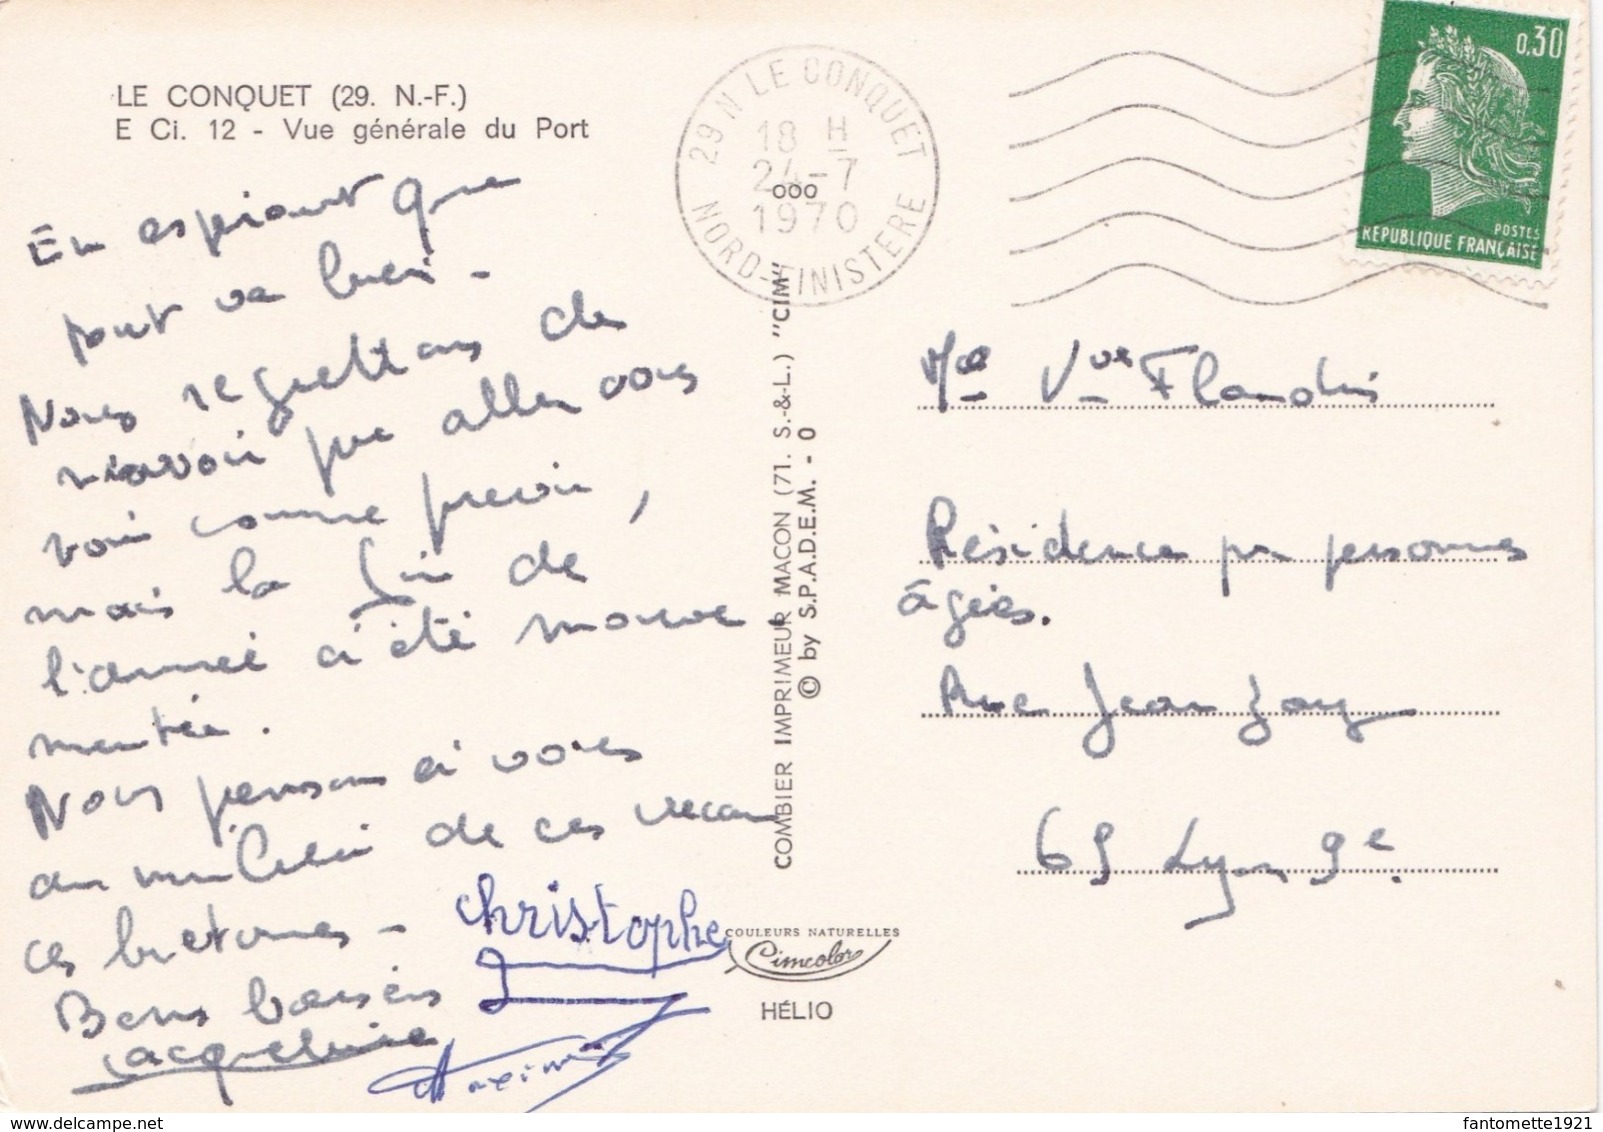 LE CONQUET (29. N.-F.)
E Ci. 12 - Vue générale du Port
En espérant que
tout va bien -
Nous regrettons de
n'avoir pu aller vous
voir comme prévu,
mais la fin de
l'année a été mouve
mentée.
Nous pensons à vous
au milieu de ces vacan
ces bretonnes -
Bons baisers
Jacqueline
Christophe
29 N LE CONQUET
18 H
24-7
1970
NORD-FINISTERE
0,30
POSTES
REPUBLIQUE FRANÇAISE
COMBIER IMPRIMEUR MACON (71. S.-&-L.) "CIM"
© by S.P.A.D.E.M. - 0
ooo
Mme Vve Flandrin
Résidence pr personnes
âgées.
Rue Jean Zay
69 Lyon 9e.
COULEURS NATURELLES
Cimcolor
HÉLIO
fantomette1921